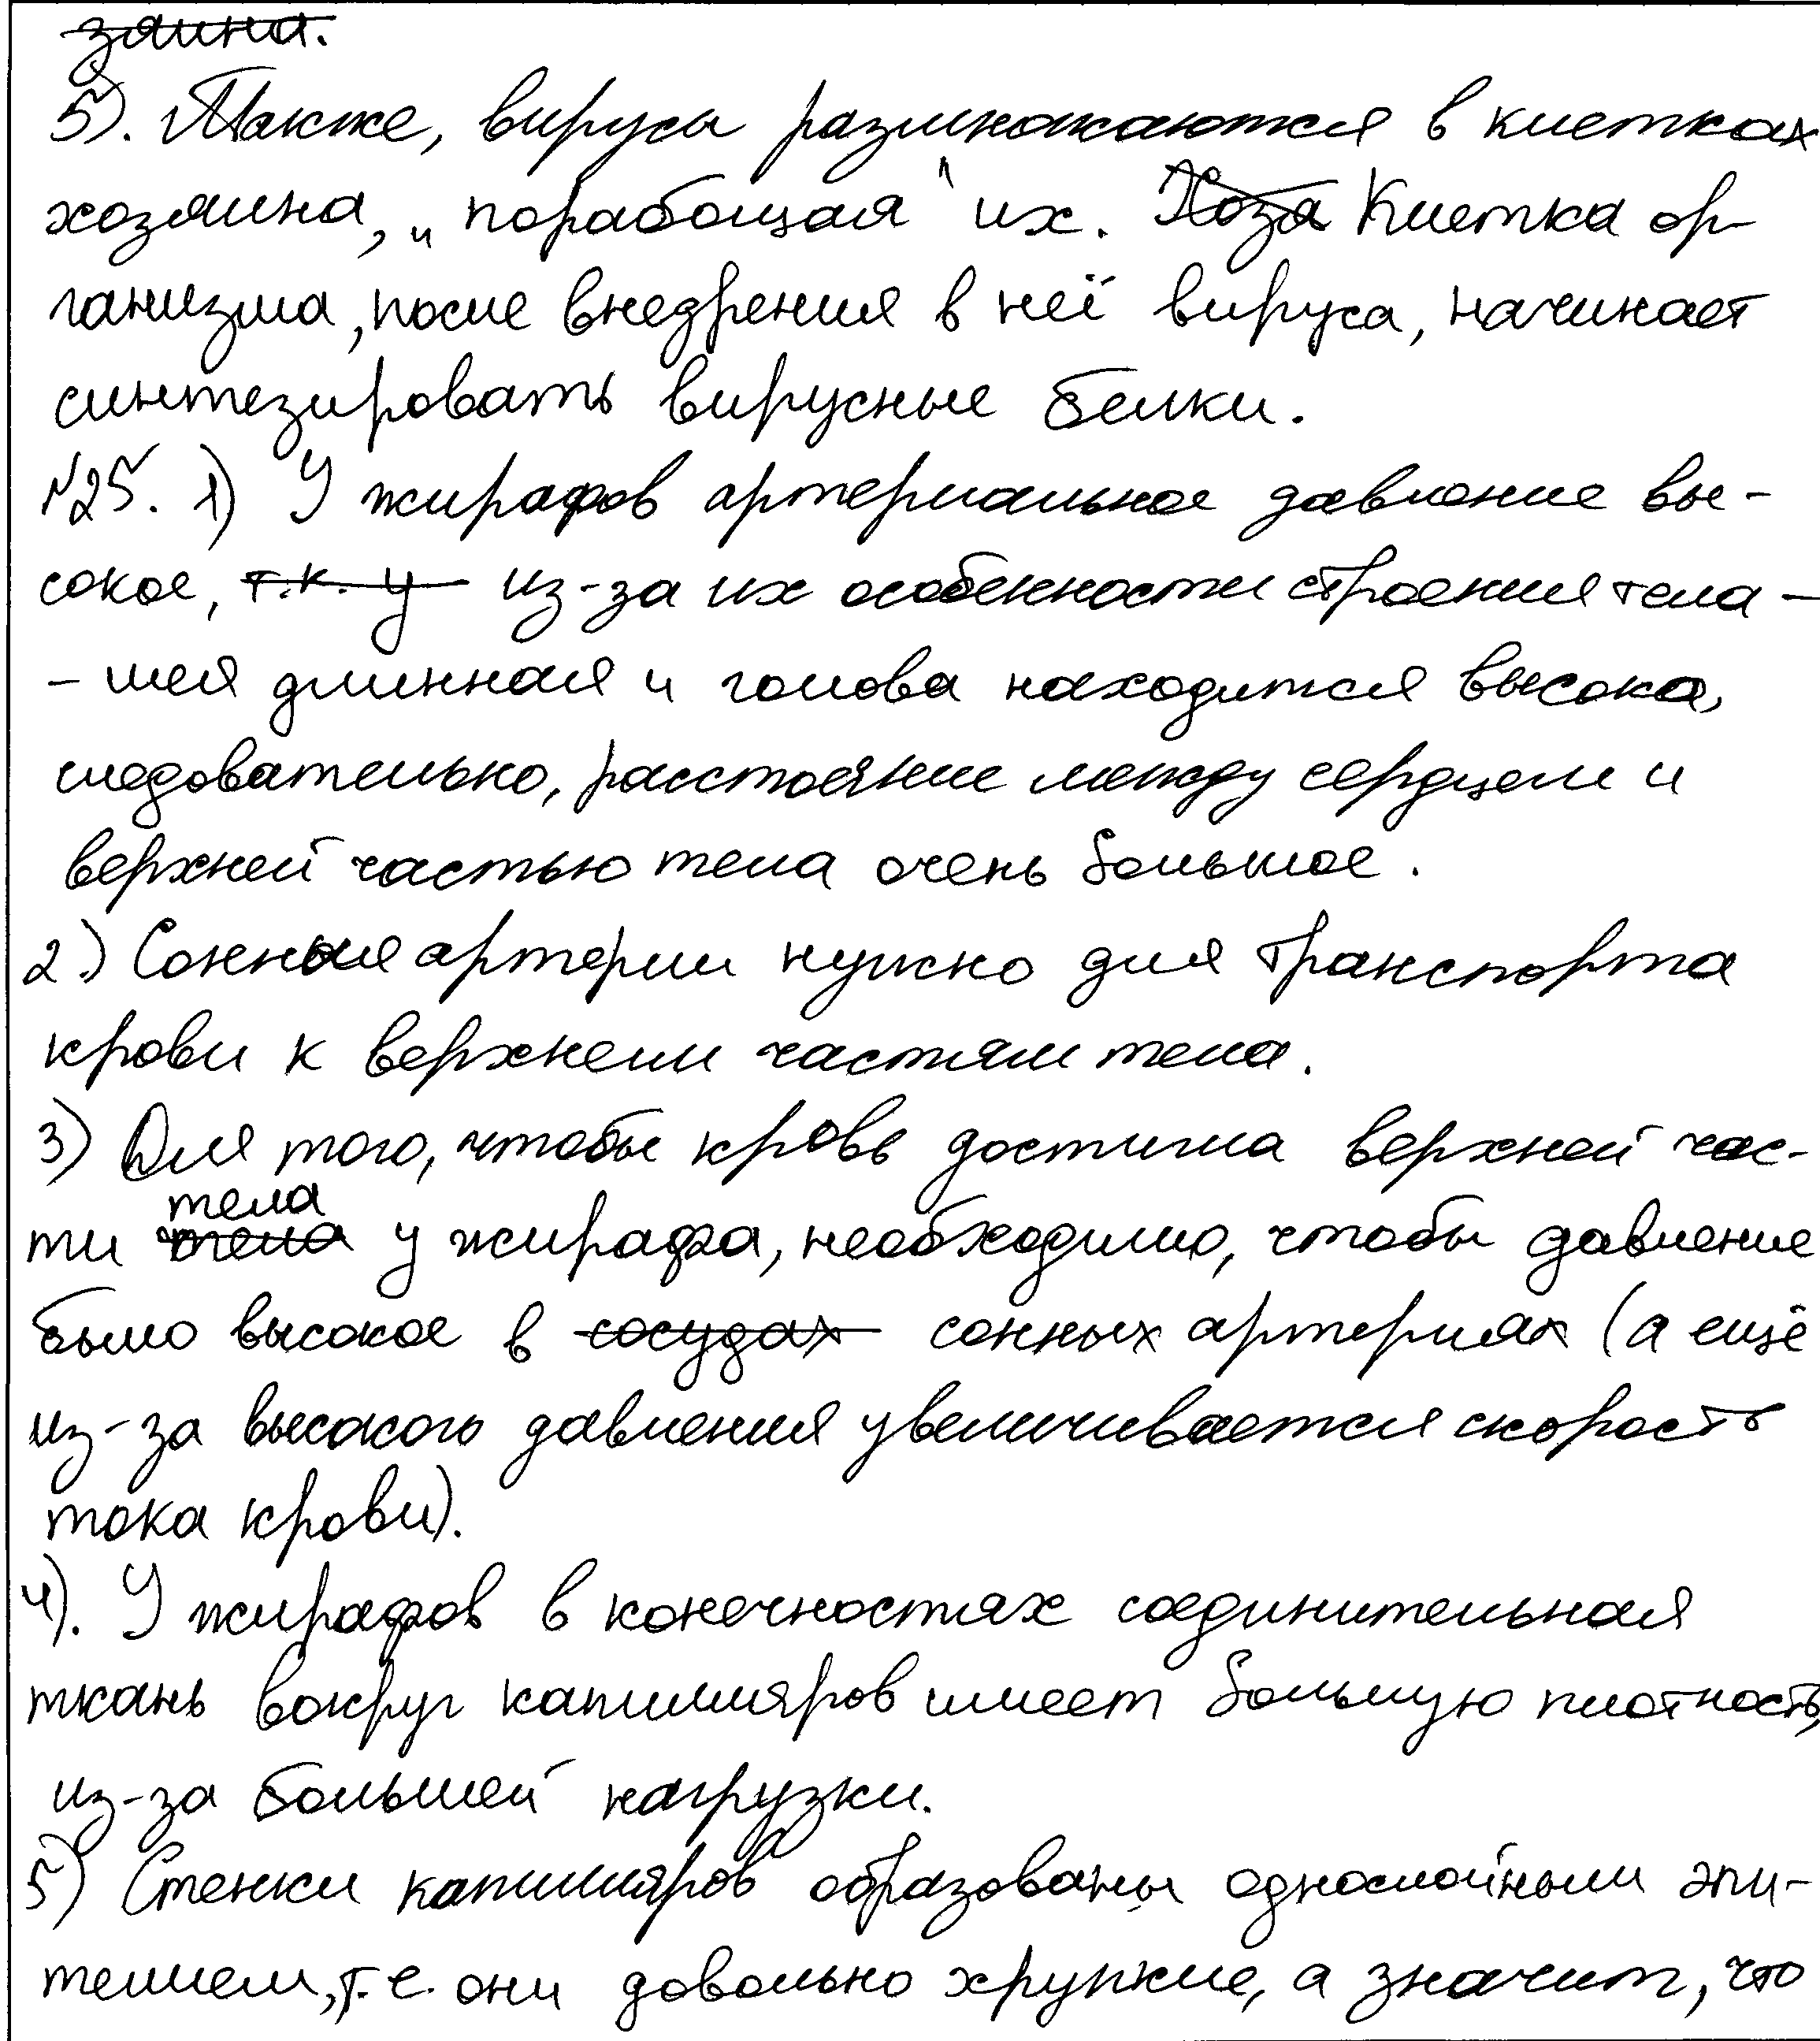 зяина.
5). Также, вирусы размножаются в клетках
хозяина, „порабощая" их. Хозя Клетка ор-
ганизма, после внедрения в неё вируса, начинает
синтезировать вирусные белки.
№25. 1) У жирафов артериальное давление вы-
сокое, т.к. у из-за их особенности строения тела -
- шея длинная и голова находится высоко,
следовательно, расстояние между сердцем и
верхней частью тела очень большое.
2.) Сонные артерии нужно для транспорта
крови к верхнем частям тела.
3) Для того, чтобы кровь достигла верхней час-
тела
ти тела у жирафа, необходимо, чтобы давление
было высокое в сосудах сонных артериях (а ещё
из-за высокого давления увеличивается скорость
тока крови).
4). У жирафов в конечностях соединительная
ткань вокруг капилляров имеет большую плотность,
из-за большей нагрузки.
5) Стенки капилляров образованы однослойным эпи-
телием, т.е. они довольно хрупкие, а значит, что